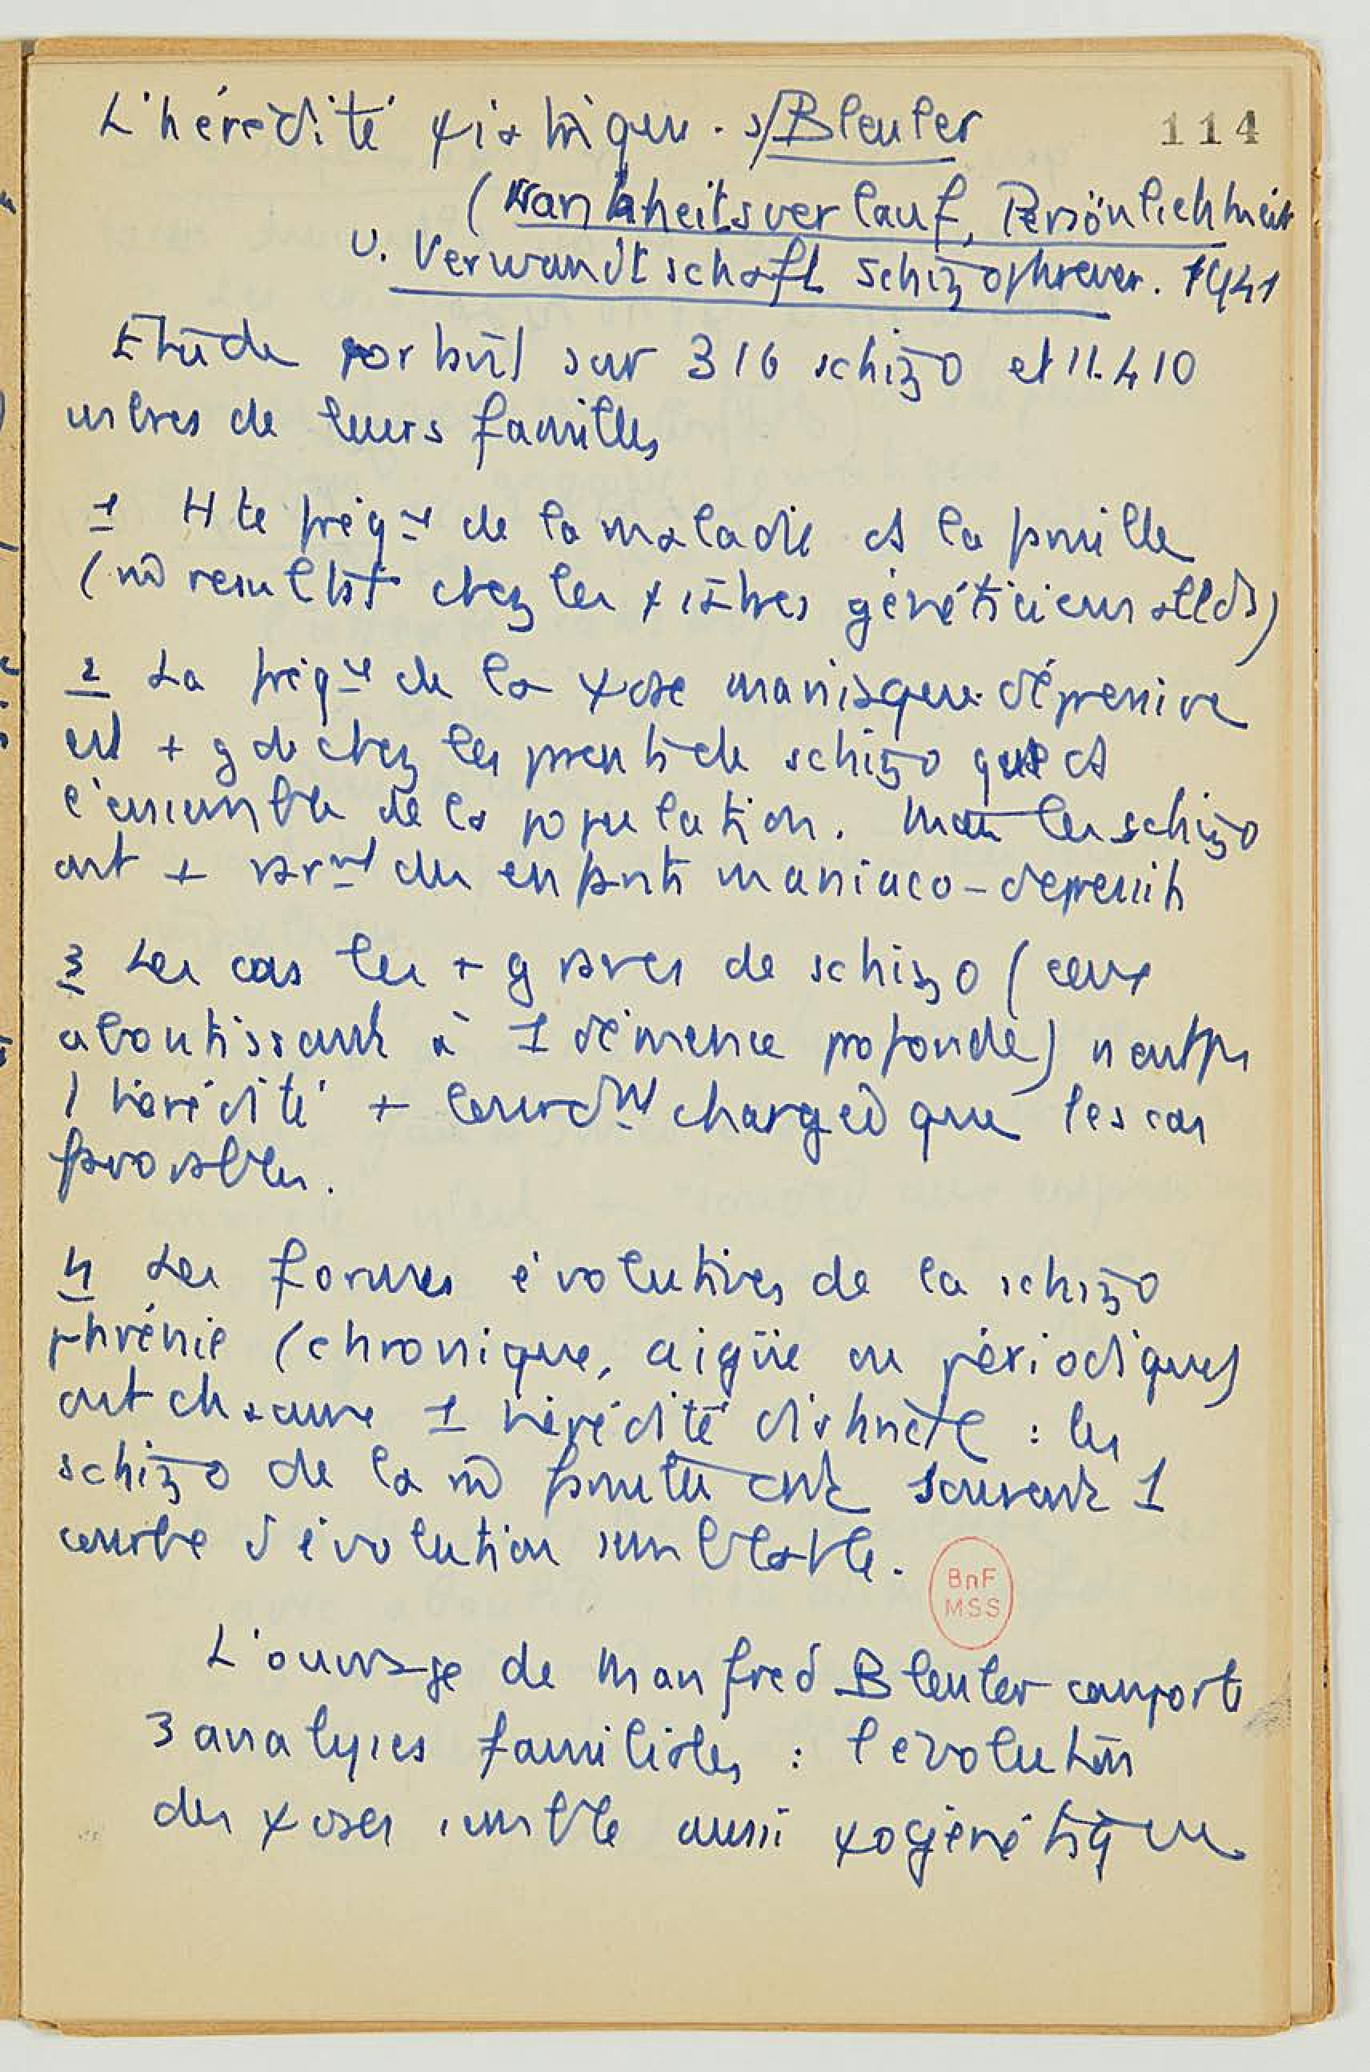 L'hérédité ψiatrique. s/ Bleuler 114
(Krankheitsverlauf, Persönlichkeit
u. Verwandtschaft Schizophrener. 1941
Etude portant sur 316 schizo et 11.410
mbres de leurs familles
1 Hte fréq de la maladie ds la famille
(m̂ résultat chez les ψiatres généticiens allds)
2 La fréq de la ψose maniaque-dépressive
est + gde chez les parents de schizo que ds
l'ensemble de la population. Mais les schizo
ont + rarmt des enfants maniaco-dépressifs
3 Les cas les + graves de schizo (ceux
aboutissant à 1 démence profonde) n'ont pas
1 hérédité + lourdmt chargée que les cas
favorables.
4 Les formes évolutives de la schizo
phrénie (chronique, aigüe ou périodique)
ont chacune 1 hérédité distincte : les
schizo de la m̂ famille ont souvent 1
courbe d'évolution semblable.
BnF
MSS
L'ouvrage de Manfred Bleuler comporte
3 analyses familiales : l'évolution
des ψoses semble aussi ψogénétique